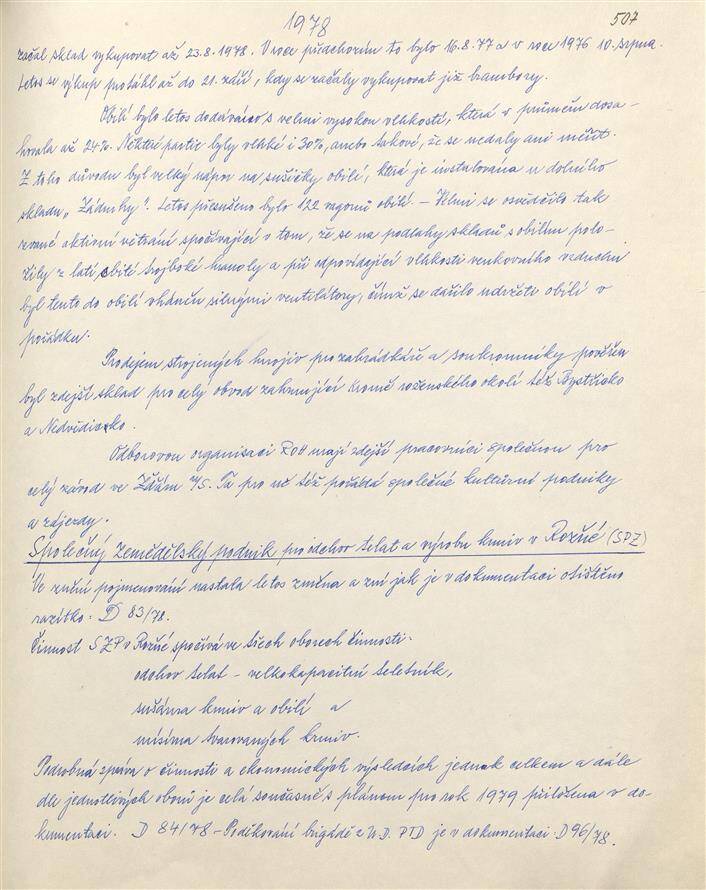 1978
507
začal sklad vykupovat až 23.8.1978. V roce předchozím to bylo 16.8.77 a v roce 1976 10. srpna.
Letos se výkup protáhl až do 21. září, kdy se začaly vykupovat již brambory.
Obilí bylo letos dodáváno s velmi vysokou vlhkostí, která v průměru dosa-
hovala až 24%. Některé partie byly vlhké i 30%, anebo takové, že se nedaly ani měřit.
Z toho důvodu byl velký nápor na sušičky obilí, která je instalována u dolního
skladu „Zádruhy". Letos přesušeno bylo 122 vagonů obilí. – Velmi se osvědčilo tak
zvané aktivní větrání spočívající v tom, že se na podlahy skladů s obilím polo-
žily z latí zbité trojboké kanály a při odpovídající vlhkosti venkovního vzduchu
byl tento do obilí vháněn silnými ventilátory, čímž se dařilo udržeti obilí v
pořádku.
Prodejem strojených hnojiv pro zahrádkáře a soukromníky pověřen
byl zdejší sklad pro celý obvod zahrnující kromě roženského okolí též Bystřicko
a Nedvědicko.
Odborovou organisaci ROH mají zdejší pracovníci společnou pro
celý závod ve Žďáru n/S. Ta pro ně též pořádá společné kulturní podniky
a zájezdy.
Společný zemědělský podnik pro odchov telat a výrobu krmiv v Rožné (SPZ)
Ve znění pojmenování nastala letos změna a zní jak je v dokumentaci otištěno
razítko: D 83/78.
Činnost SZP v Rožné spočívá ve třech oborech činnosti.
odchov telat – velkokapacitní teletník,
sušárna krmiv a obilí a
mísírna tvarovaných krmiv.
Podrobná zpráva o činnosti a ekonomických výsledcích jednak celkem a dále
dle jednotlivých oborů je celá současně s plánem pro rok 1979 přiložena v do-
kumentaci. D 84/78 – Poděkování brigádě z U.D. PTD je v dokumentaci D 96/78.